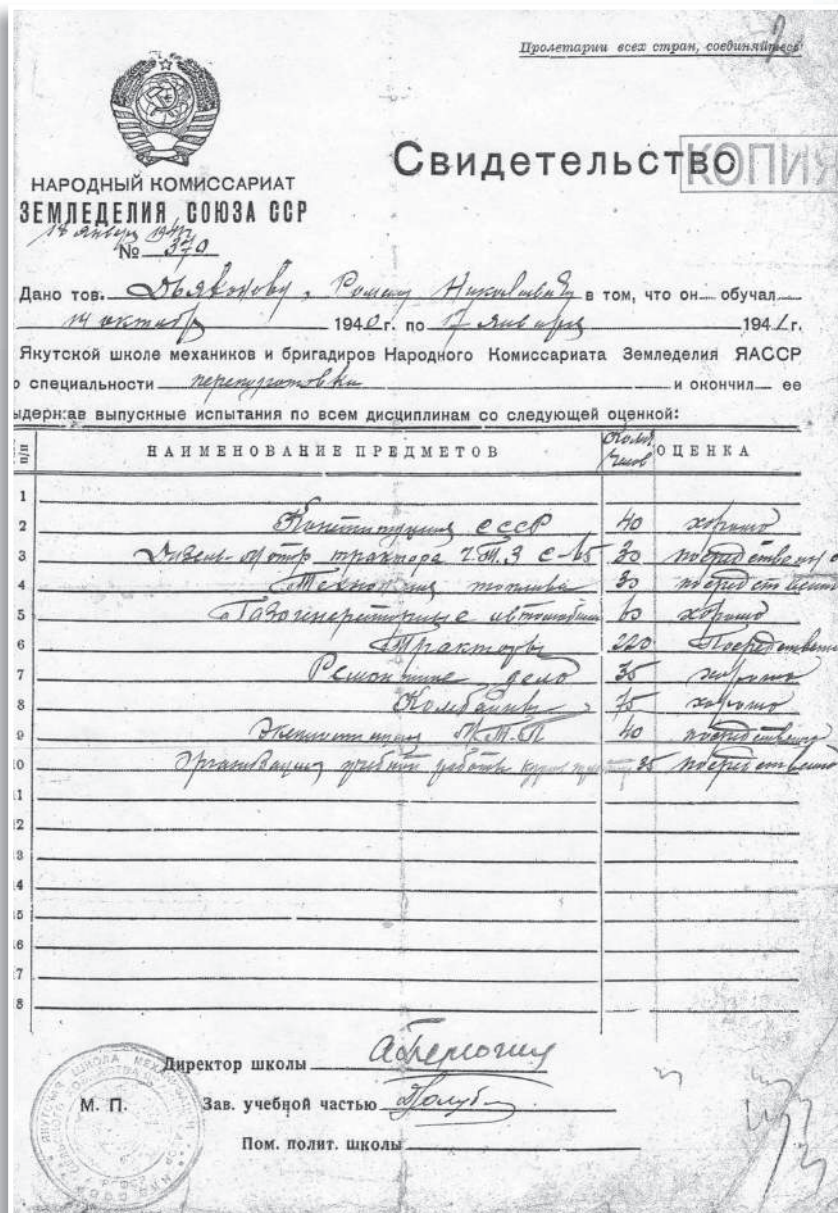 Пролетарии всех стран, соединяйтесь!
НАРОДНЫЙ КОМИССАРИАТ
ЗЕМЛЕДЕЛИЯ СОЮЗА ССР
18 января 1941
№ 370
Свидетельство
КОПИЯ
Дано тов. Дьяконову, Роману Николаевичу в том, что он обучал
14 октября 1940 г. по 17 января 1941 г.
Якутской школе механиков и бригадиров Народного Комиссариата Земледелия ЯАССР
о специальности переподготовки и окончил ее
ыдержав выпускные испытания по всем дисциплинам со следующей оценкой:
п/п НАИМЕНОВАНИЕ ПРЕДМЕТОВ часов ОЦЕНКА
1
2 Конституция СССР 40 хорошо
3 Дизель-мотор трактора Ч.Т.З 30 посредственно
4 топлива 30 посредственно
5 Газогенераторные автомобили 60 хорошо
6 Тракторы 220 Посредственно
7 Ремонтное дело 35 хорошо
8 Комбайны 75 хорошо
9 Эксплоатация М.Т.П 40 посредственно
10 Организация учебной работы 35 посредственно
11
12
13
14
15
16
17
18
Директор школы
М. П. Зав. учебной частью
Пом. полит. школы